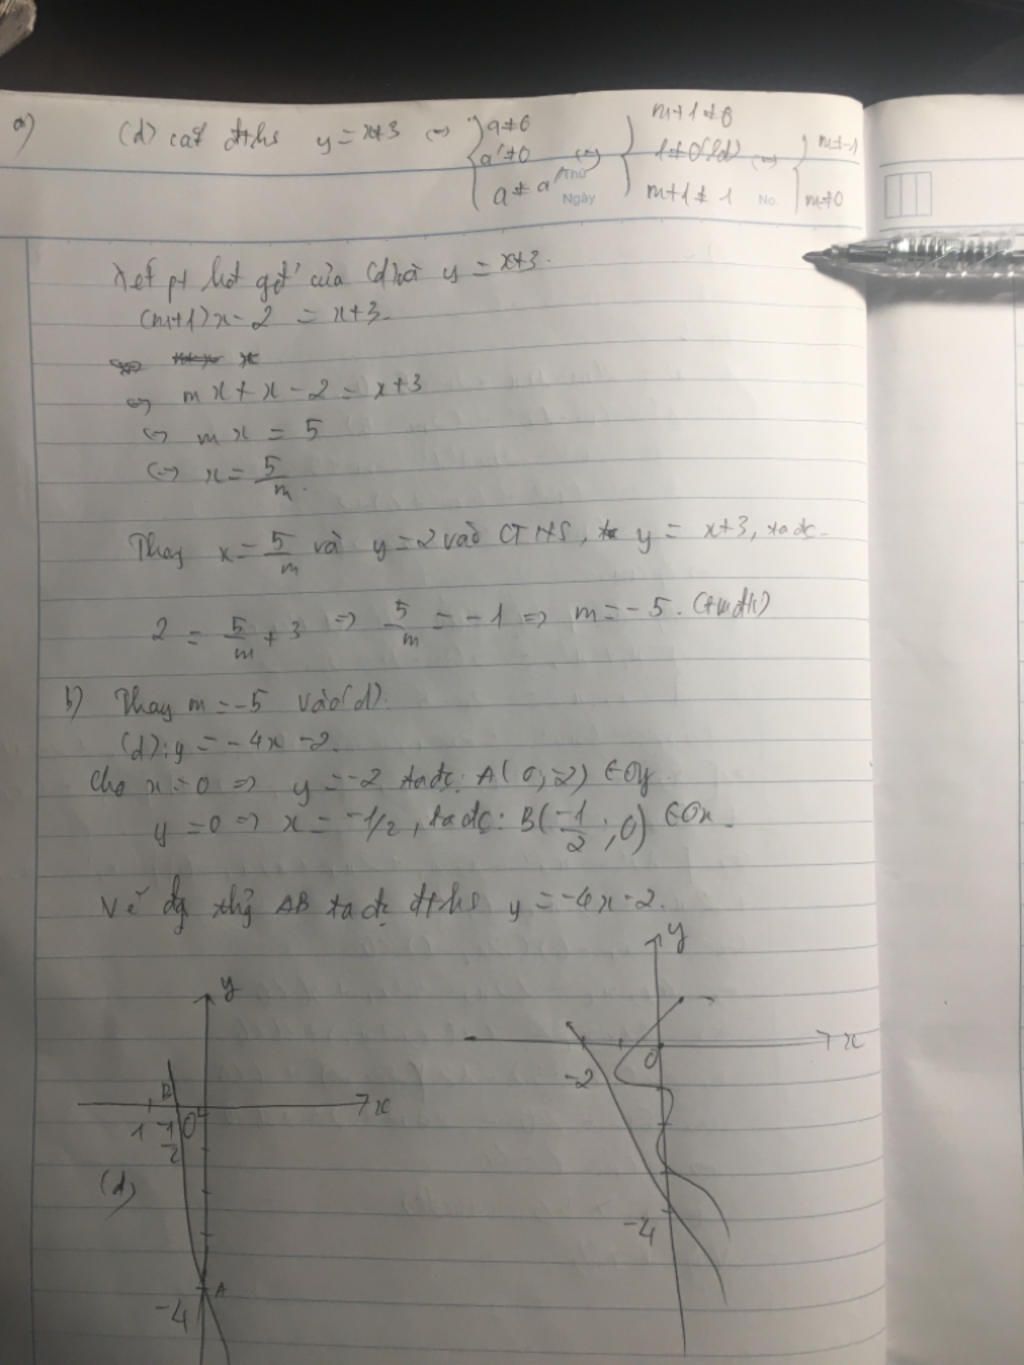 a) (d) cắt đths y = x+3 ⇔ { a≠0 ⇔ { m+1≠0 ⇔ { m≠-1
a'≠0 1≠0 (lđ)
a ≠ a' m+1≠1 m≠0
Thứ
Ngày No.
Xét pt hđ gđ của (d) và y = x+3.
(m+1)x - 2 = x+3.
⇔ mx + x - 2 = x+3
⇔ mx = 5
⇔ x = 5/m.
Thay x = 5/m và y = 2 vào CTHS, y = x+3, ta đc.
2 = 5/m + 3 ⇒ 5/m = -1 ⇒ m = -5. (tmđk)
b) Thay m = -5 vào (d).
(d): y = -4x - 2.
Cho x = 0 ⇒ y = -2 ta đc: A(0;-2) ∈ Oy
y = 0 ⇒ x = -1/2, ta đc: B(-1/2; 0) ∈ Ox.
Vẽ đg thg AB ta đc đths y = -4x-2.
y
y
x
-2
0
B
x
1
-1/2
0
(d)
-4
A
-4